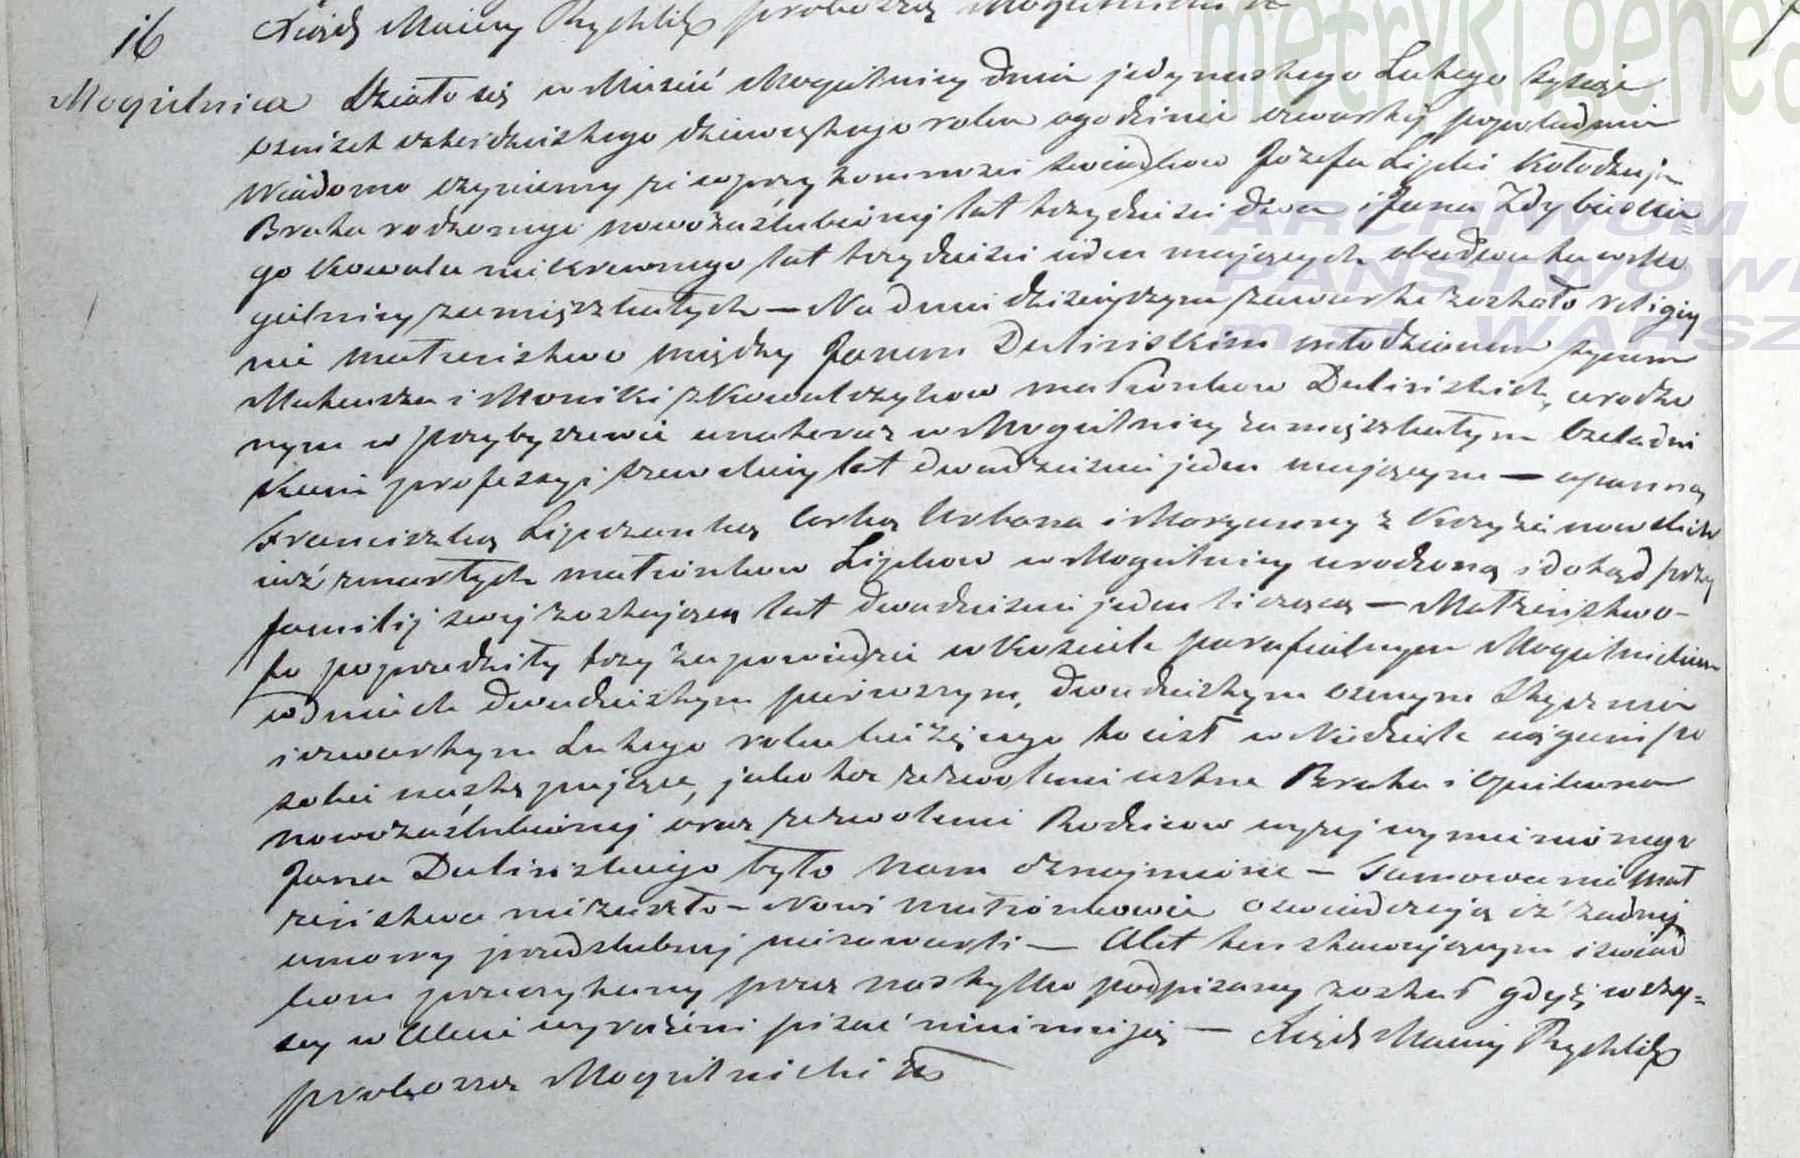 Xiądz Maciey Rychlik proboszcz Mogielnicki
16
Mogielnica Działo się w Mieście Mogielnicy dnia jedynastego Lutego tysiąc
osmset czterdziestego dziewiątego roku o godzinie czwartey popołudniu
Wiadomo czyniemy że w przytomności świadków Józefa Lipki Kołodzieja
Brata rodzonego nowozaślubionej lat trzydzieści dwa i Jana Zdybickie=
go Kowala niekrewnego lat trzydzieści jeden mających obadwa tu w Mo
gielnicy zamięszkałych — Na dniu dzisiejszym zawarte zostało religij
nie małżeństwo między Janem Dulińskim młodzianem synem
Mateusza i Moniki z Kowalczyków małżonków Dulińskich, urodzo
nym w Przybyszewie a na teraz w Mogielnicy zamięszkałym Czeladni
kiem professyi szewckiey lat dwadzieścia jeden mającym — a panną
Franciszką Lipczanką Corką Urbana i Maryanny z Krzyżanowskich
już zmarłych małżonków Lipków w Mogielnicy urodzoną i dotąd przy
familij swej zostającą lat dwadzieścia jeden liczącą — Małżeństwo
to poprzedziły trzy zapowiedzie w Kościele parafialnym Mogielnickim
w dniach dwudziestym pierwszym, dwudziestym osmym Stycznia
i czwartym Lutego roku bieżącego to iest w Niedziele iedne po
sobie następujące, jako też zezwolenie ustne Brata i Opiekuna
nowozaślubionej oraz zezwolenie Rodziców wyżej wymienionego
Jana Dulińskiego było nam oznajmione — Tamowanie mał
żeństwa nie zaszło — Nowi małżonkowie oświadczają iż żadnej
umowy przedślubnej nie zawarli — Akt ten stawającym i świad
kom przeczytany przez nas tylko podpisany został gdyż wszy=
scy w Akcie wyrażeni pisać nieumieją — Xiądz Maciey Rychlik
proboszcz Mogielnicki
metryki.genea
ARCHIWUM
PAŃSTWOWE
m.st. WARSZ